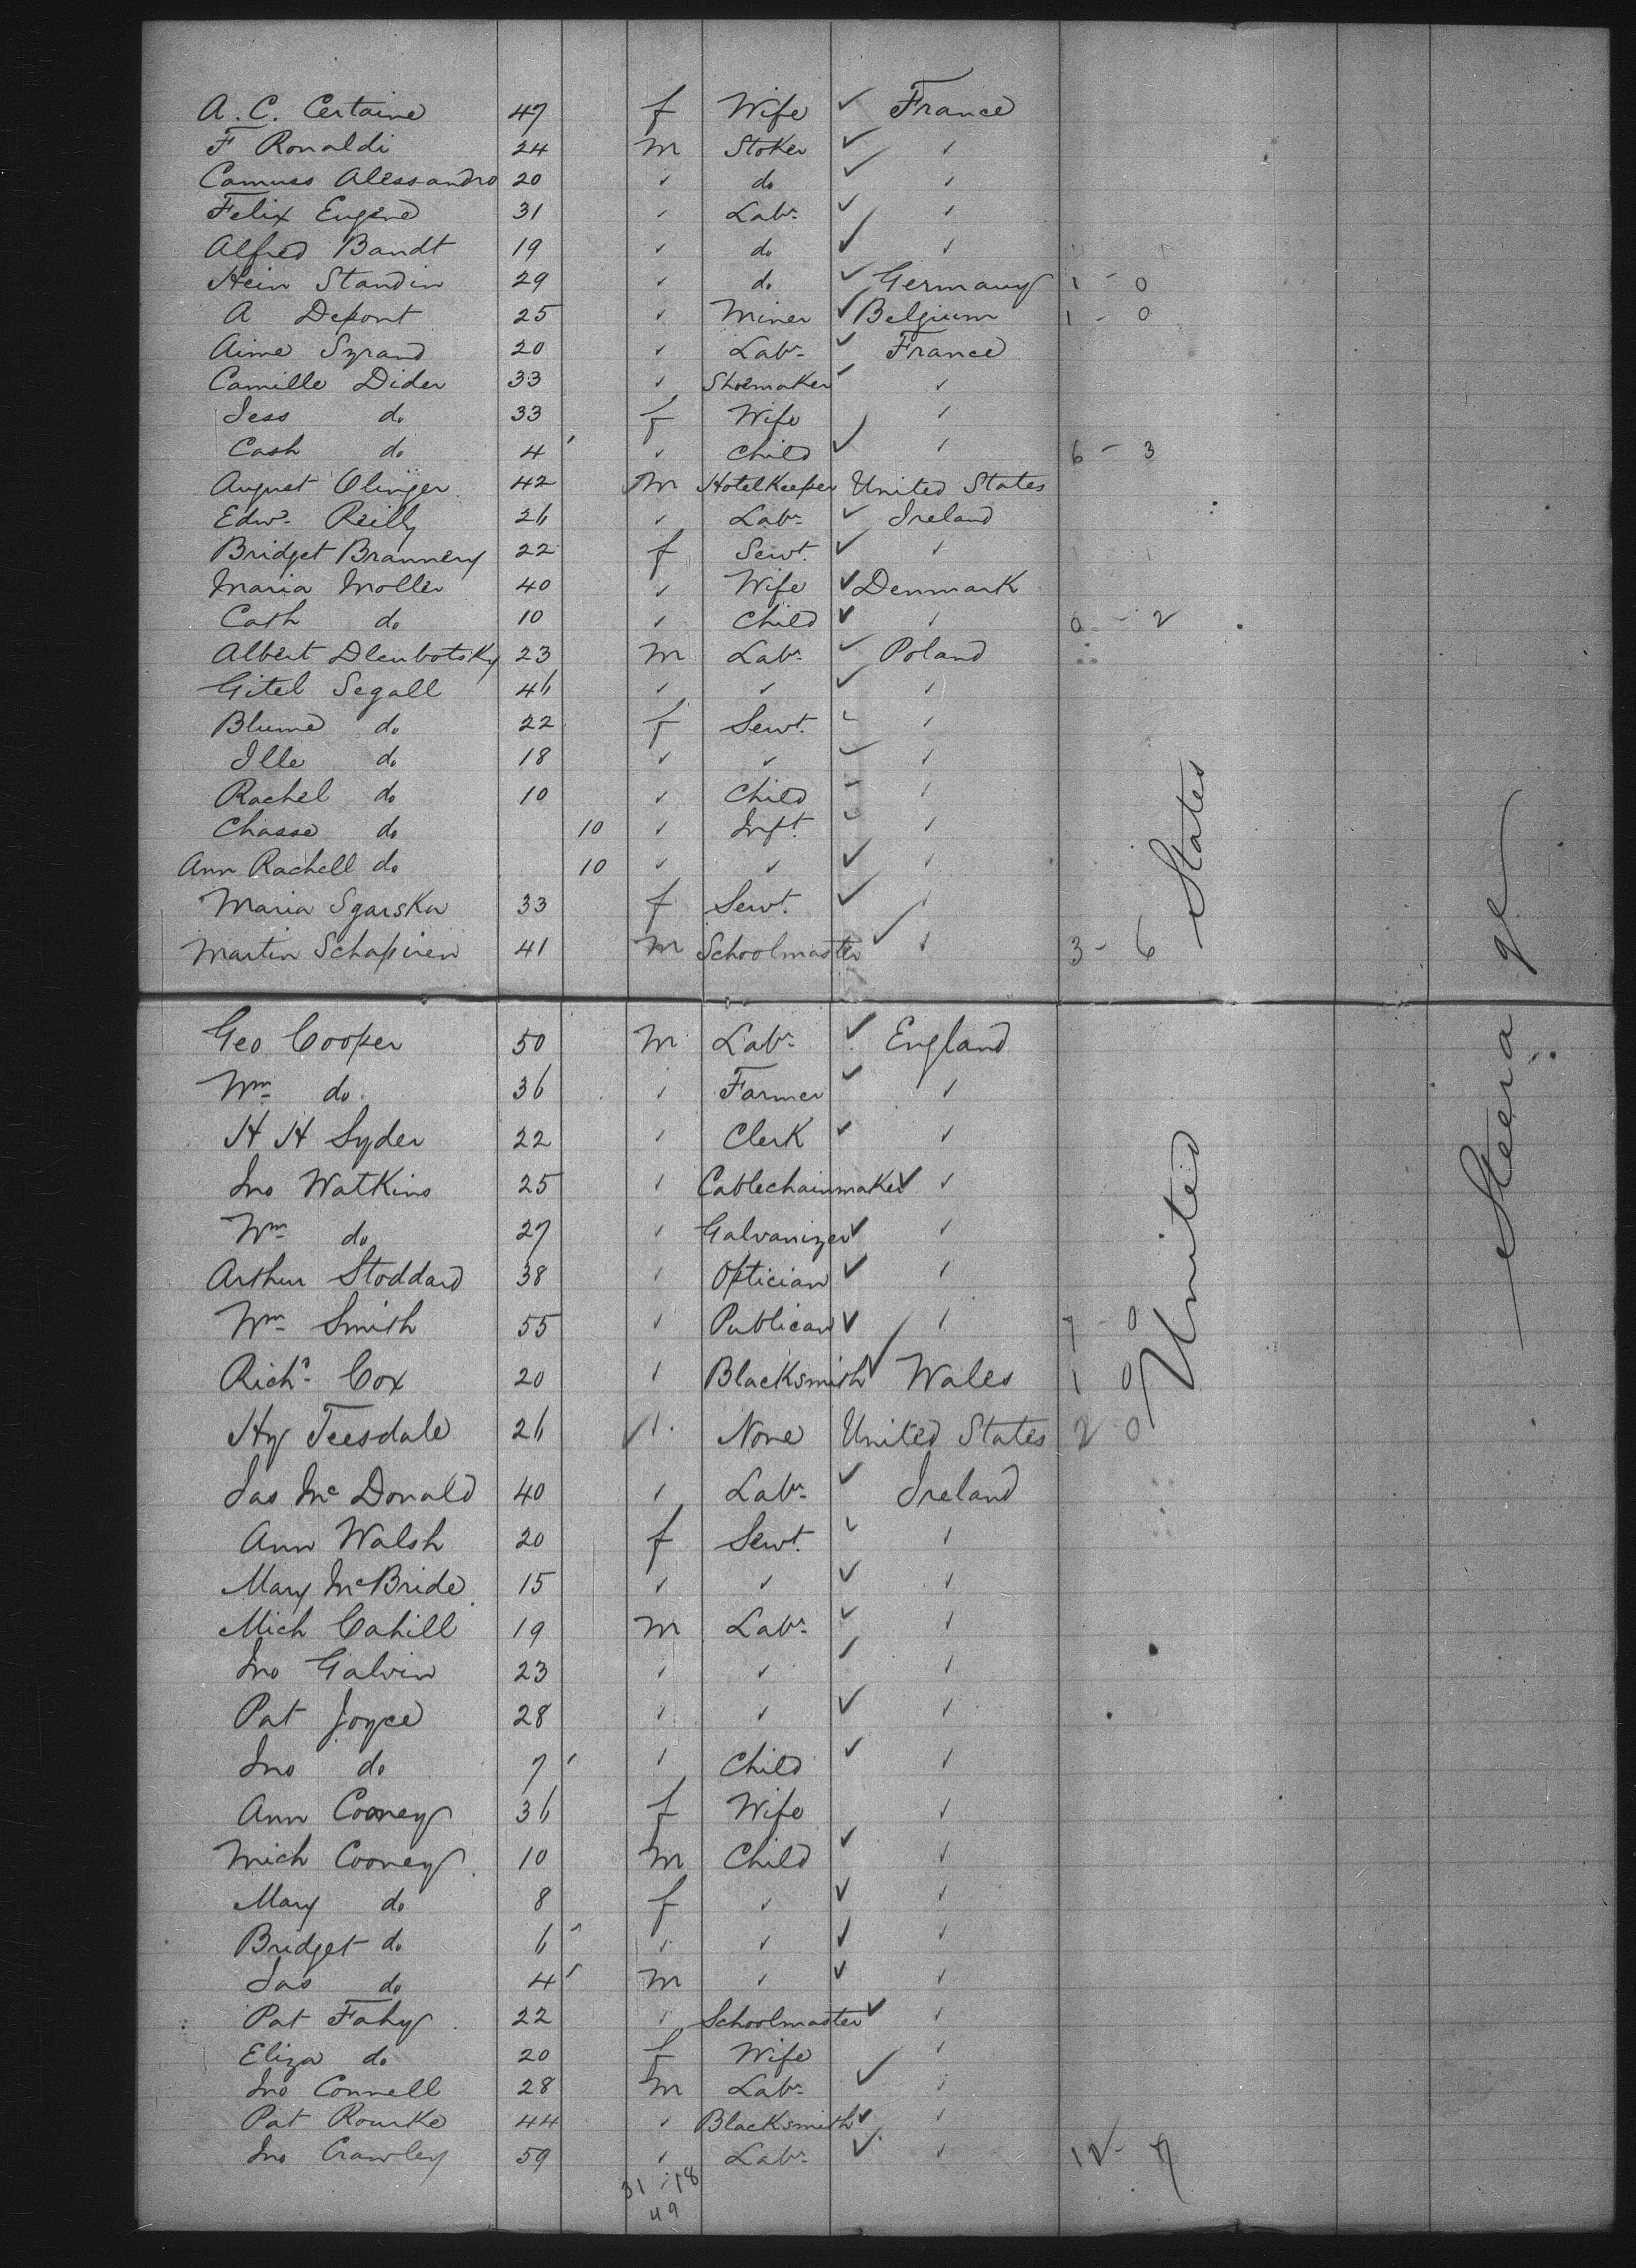 A. C. Certaine 47 f Wife ✓ France
F Ronaldi 24 m Stoker ✓ ✓
Camuss Alessandro 20 ✓ do ✓ ✓
Felix Eugene 31 ✓ Labr ✓ ✓
Alfred Bandt 19 ✓ do ✓ ✓
Hein Standin 29 ✓ do ✓ Germany 1 - 0
A Depont 25 ✓ Miner ✓ Belgium 1 - 0
Aime Syrand 20 ✓ Labr ✓ France
Camille Dider 33 ✓ Shoemaker ✓ ✓
Jess do 33 f Wife ✓
Cash do 4 ✓ Child ✓ ✓ 6 - 3
August Olinger 42 M Hotel Keeper United States
Edwd Reilly 26 ✓ Labr ✓ Ireland
Bridget Brannery 22 f Servt ✓ ✓
Maria Moller 40 ✓ Wife ✓ Denmark
Cath do 10 ✓ Child ✓ ✓ 0 - 2
Albert Dlenbotsky 23 m Labr ✓ Poland
Gitel Segall 46 ✓ ✓ ✓ ✓
Blume do 22 f Servt. ✓ ✓
Ille do 18 ✓ ✓ ✓ ✓
Rachel do 10 ✓ Child ✓ ✓
Chasse do 10 ✓ Inft. ✓ ✓
Ann Rachell do 10 ✓ ✓ ✓ ✓
Maria Sgarska 33 f Servt. ✓ ✓
Martin Schapiren 41 m Schoolmaster ✓ ✓ 3 - 6
Geo Cooper 50 m Labr ✓ England
Wm do 36 ✓ Farmer ✓ ✓
H H Syder 22 ✓ Clerk ✓ ✓
Jno Watkins 25 ✓ Cablechainmaker ✓ ✓
Wm do 27 ✓ Galvanizer ✓ ✓
Arthur Stoddard 38 ✓ Optician ✓ ✓
Wm Smith 55 ✓ Publican ✓ ✓ 7 - 0
Richd Cox 20 ✓ Blacksmith ✓ Wales 1 0
Hy Teesdale 26 ✓ None United States 2 0
Jas McDonald 40 ✓ Labr ✓ Ireland
Ann Walsh 20 f Servt. ✓ ✓
Mary McBride 15 ✓ ✓ ✓ ✓
Mich Cahill 19 m Labr ✓ ✓
Jno Galvin 23 ✓ ✓ ✓ ✓
Pat Joyce 28 ✓ ✓ ✓ ✓
Jno do 7 ✓ Child ✓ ✓
Ann Cooney 36 f Wife ✓
Mich Cooney 10 m Child ✓ ✓
Mary do 8 f ✓ ✓ ✓
Bridget do 6 ✓ ✓ ✓ ✓
Jas do 4 m ✓ ✓ ✓
Pat Fahy 22 ✓ Schoolmaster ✓ ✓
Eliza do 20 f Wife ✓
Jno Connell 28 m Labr ✓ ✓
Pat Rourke 44 ✓ Blacksmith ✓ ✓
Jno Crawley 59 ✓ Labr ✓ ✓ 12 - 7
31 : 18
49
United States
Steerage